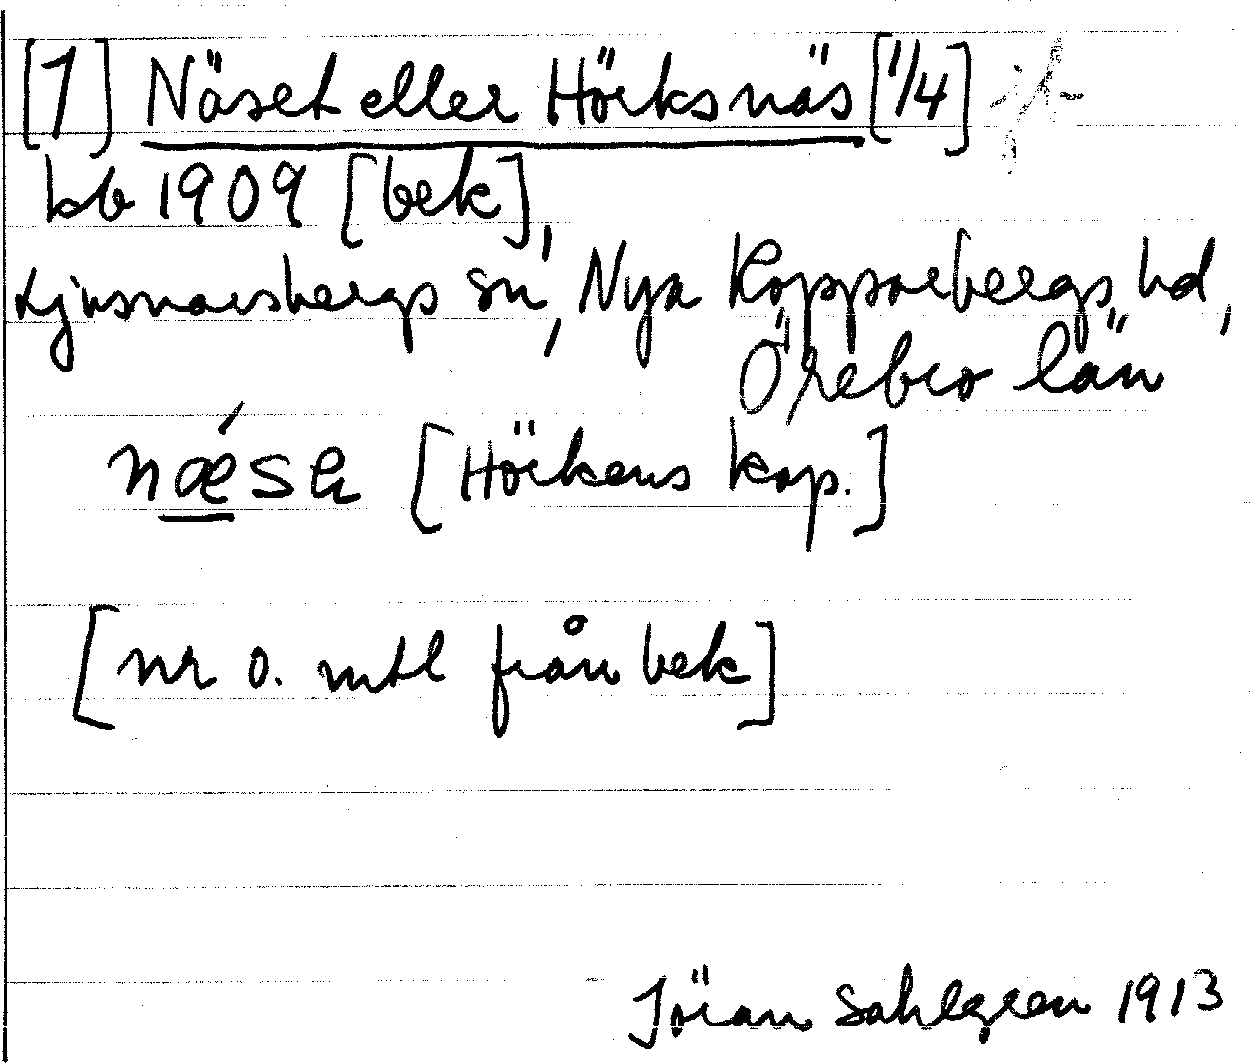 [1] Näset eller Hörksnäs [1/4]
kb 1909 [bek],
Ljusnarsbergs sn, Nya Kopparbergs hd,
Örebro län
næ´sa [Hörkens kap.]
[nr o. mtl från bek]
Jöran Sahlgren 1913